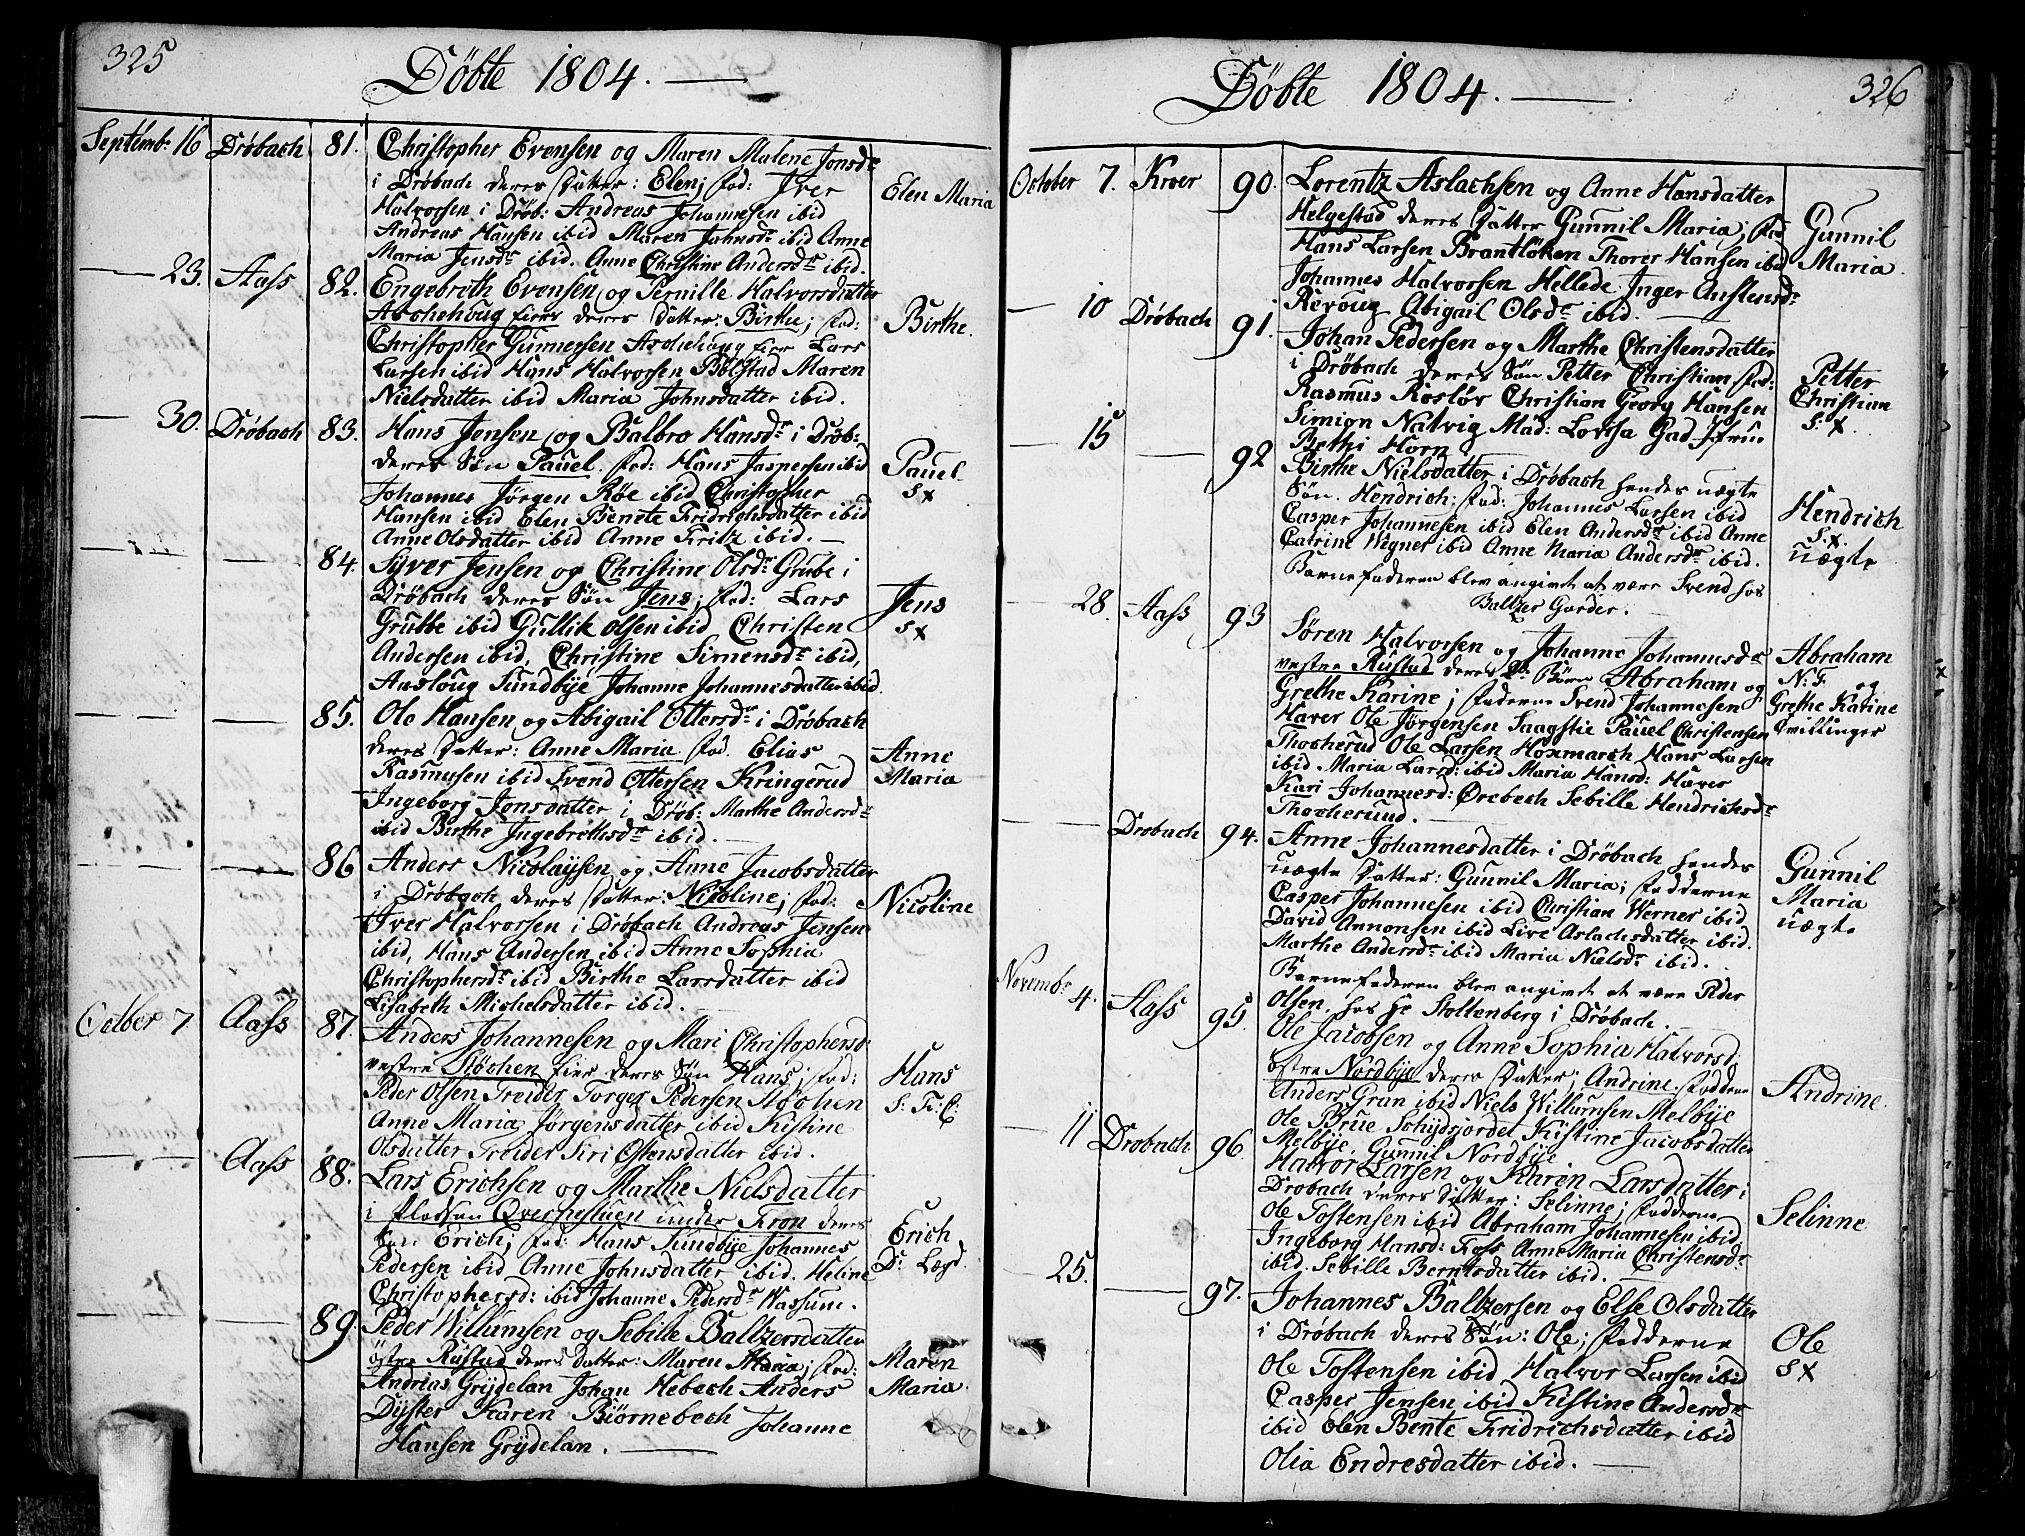 325
Døbte 1804.
Septemb: 16 Drøbach 81. Christopher Evensen og Maren Malene Jonsdr
i Drøbach deres Datter: Elen; fad: Iver
Halvorsen i Drøb: Andreas Johannesen ibid
Andreas Hansen ibid Maren Johnsdr ibid Anne
Maria Jensdr ibid. Anne Christine Andersdr ibid.
Elen Maria
23. Aass 82. Engebreth Evensen og Pernille Halvorsdatter
Aschehoug eier deres Datter: Birthe; fad:
Christopher Gunnersen Aschehoug eier Lars
Larsen ibid Hans Halvorsen Bølstad Maren
Nielsdatter ibid Maria Johnsdatter ibid.
Birthe.
30. Drøbach 83. Hans Jensen og Balbro Hansdr i Drøb:
deres Søn Pauel. fad: Hans Jaspersen ibid
Johannes Jørgen Røe ibid Christopher
Hansen ibid Elen Benete Fridrichsdatter ibid
Anne Olsdatter ibid Anne Fritz ibid.
Pauel
s x
84. Syver Jensen og Christine Olsdr Grube i
Drøbach deres Søn Jens; fad: Lars
Grubbe ibid Gullik Olsen ibid Christen
Andersen ibid, Christine Simensdr ibid,
Ansloug Sundbye Johanne Johannesdatter ibid.
Jens
s x
85. Ole Hansen og Abigail Ottersdr i Drøbach
deres Datter: Anne Maria fad. Elias
Rasmusen ibid Svend Ottersen Kringerud
Ingeborg Jonsdatter i Drøb: Marthe Andersdr
ibid Birthe Ingebrethsdr ibid.
Anne
Maria
86 Anders Nicolaysen og Anne Jacobsdatter
i Drøbach deres Datter: Nicoline; fad:
Iver Halvorsen i Drøbach Andreas Jensen
ibid, Hans Andersen ibid Anne Sophia
Christophersdr ibid Birthe Larsdatter ibid
Lisabeth Michelsdatter ibid.
Nicoline
October 7 Aass 87. Anders Johannesen og Mari Christophersd
vestre Støchen eier deres Søn Hans; fad:
Peder Olsen Treider Torger Pedersen Støchen
Anne Maria Jørgensdatter ibid Kistine
Olsdatter Troider Siri Ostensdatter ibid.
Hans
S: F: C:
Aass 88. Lars Erichsen og Marthe Nielsdatter
i Pladsen Qvernestuen under Fron deres
Søn Erich; fad: Hans Sundbye Johannes
Pedersen ibid Anne Johnsdatter ibid. Heline
Christophersd: ibid Johanne Pedersdr Wassum.
Erich
D. Lægd.
89. Peder Willumsen og Sebille Baltzersdatter
östre Rustad deres Datter: Maren Maria; fad:
Andrias Grydelan Johan Hebech Anders
Dyster Karen Biørnebech Johanne
Hansen Grydelan.
Maren
Maria.
Døbte 1804.
326
October 7. Kroer 90. Lorentz Aslachsen og Anne Hansdatter
Helgestad deres Datter Gunnil Maria; fad
Hans Larsen Brantløken Thorer Hansen ibid
Johannes Halvorsen Hellede Inger Anstensdr
Revoug Abigail Olsdr ibid.
Gunnil
Maria.
10 Drøbach 91. Johan Pedersen og Marthe Christensdatter
i Drøbach deres Søn Petter Christian fad:
Rasmus Rosløv Christian Georg Hansen
Simion Natvig Mad: Lovisa Gad Jfrue
Bethi Horn
Petter
Christian
S: x.
15 92 Birthe Nielsdatter i Drøbach hendes uægte
Søn. Hendrich; fad: Johannes Larsen ibid
Casper Johannesen ibid Elen Andersdr ibid Anne
Catrine Wegner ibid Anne Maria Andersdr ibid.
Barnefaderen blev angivet at være Svend hos
Baltzer Garder.
Hendrich
S. x.
uægte
28. Aass 93 Søren Halvorsen og Johanne Johannesdr
vestre Rustad deres 2de Børn Abraham og
Grethe Karine; fadderne Svend Johannesen
Haver Ole Jørgensen Saagstie Pauel Christensen
Thocherud Ole Larsen Hoxmarch Hans Larsen
ibid Maria Larsd: ibid Maria Hansd: Haver
Kari Johannesd: Ørebech Sebille Hendrichsdr
Thocherund.
Abraham
N: G. og
Grethe Karine
Tvillinger
Drobach 94. Anne Johannesdatter i Drøbach hendes
uægte Datter: Gunnil Maria; fadderne
Casper Johannesen ibid Christian Werner ibid
David Annonsen ibid Live Aslachsdatter ibid.
Marthe Andersdr ibid Maria Nielsdr ibid.
Barnefaderen blev angivet at være Peder
Olsen hos Hr Stoltenberg i Drøbach.
Gunnil
Maria
uægte
Novembr 4. Aass 95. Ole Jacobsen og Anne Sophia Halvorsd:
östre Nordbye deres Datter; Andrine. fadderne
Anders Gran ibid Niels Willumsen Melbye
Ole Brue Schydsjordet Kistine Jacobsdatter
Melbye. Gunnil Nordbye
Andrine.
11 Drobach 96. Halvor Larsen og Karen Larsdatter i
Drobach deres Datter: Selinne; fadderne
Ole Tostensen ibid Abraham Johannesen ibid
Ingeborg Hansd: Foss Anne Maria Christensdr
ibid. Sebille Berntsdatter ibid.
Selinne
25. 97. Johannes Baltzersen og Else Olsdatter
i Drøbach deres Søn: Ole; fadderne
Ole Tostensen ibid Halvor Larsen ibid
Casper Jensen ibid Kistine Andersdr
ibid Elen Bente Fridrichsdatter ibid
Olia Endresdatter ibid.
Ole
s x